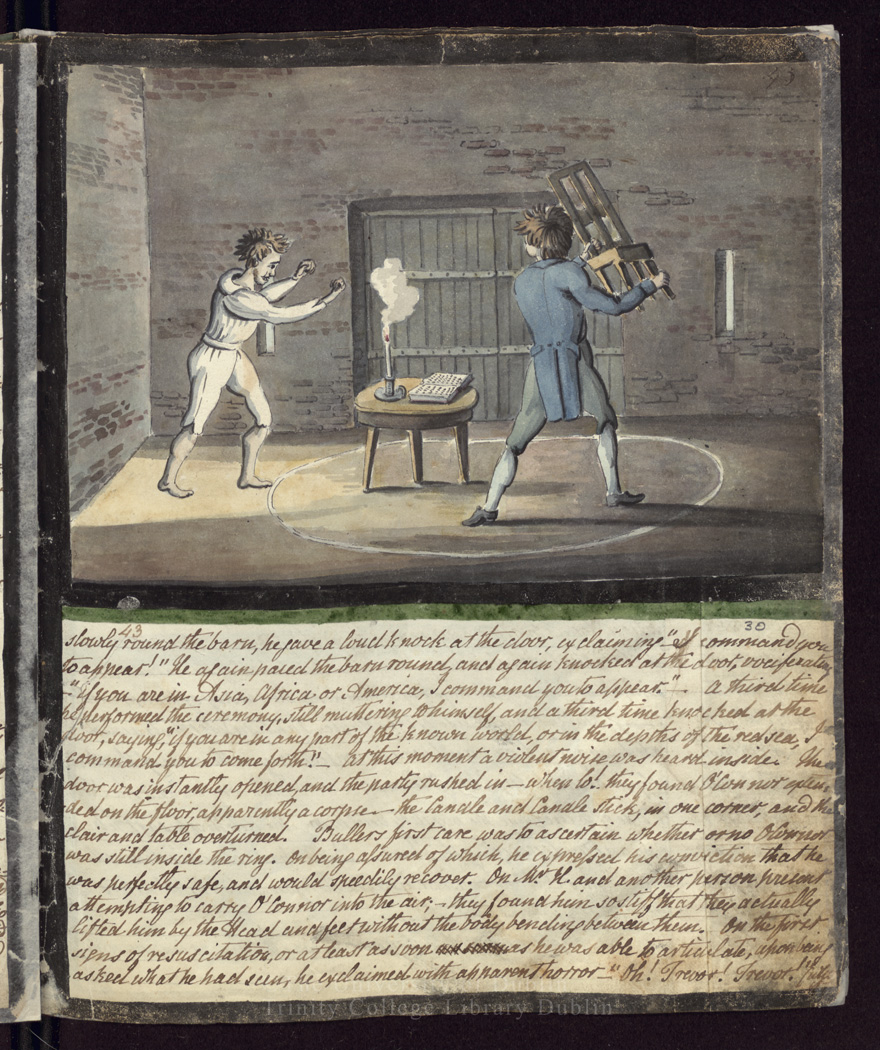 43
43
30
slowly round the barn, he gave a loud knock at the door, exclaiming "I command you
to appear!" He again paced the barn round, and again knocked at the door, vociferating
"if you are in Asia, Africa or America, I command you to appear." - a third time
he performed the ceremony, still muttering to himself, and a third time knocked at the
door, saying, "if you are in any part of the known world, or in the depths of the red sea, I
command you to come forth!" - at this moment a violent noise was heard inside. The
door was instantly opened, and the party rushed in - when lo! they found O'Connor exten-
ded on the floor, apparently a corpse - the Candle and Candle stick, in one corner, and the
chair and table overturned. Bullers first care was to ascertain whether or no O'Connor
was still inside the ring. On being assured of which, he expressed his conviction that he
was perfectly safe, and would speedily recover. On Mr H. and another person present
attempting to carry O'Connor into the air, - they found him so stiff that they actually
lifted him by the Head and feet without the body bending between them. On the first
signs of resuscitation, or at least as soon as he was able to articulate, upon being
asked what he had seen, he exclaimed with apparent horror - "Oh! Trevor! Trevor!"
Trinity College Library Dublin